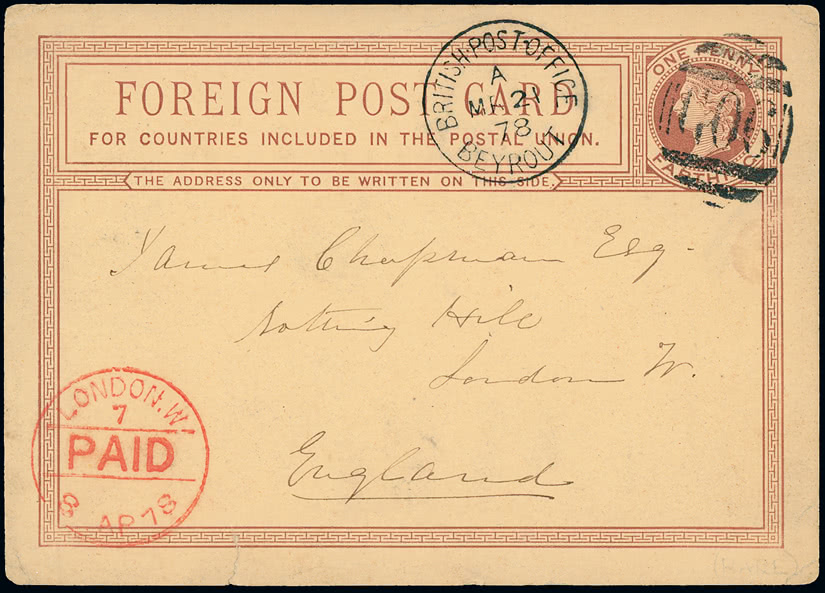 FOREIGN POST CARD
FOR COUNTRIES INCLUDED IN THE POSTAL UNION.
THE ADDRESS ONLY TO BE WRITTEN ON THIS SIDE.
BRITISH·POST·OFFICE
A
MR 21
78
BEYROUT
ONE PENNY
FARTHING
G06
James Chapman Esq.
Notting Hill
London W.
England
LONDON.W
7
PAID
8 AP 78